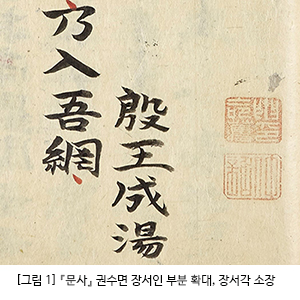 殷王成湯
乃入吾網
[그림 1] 『문사』 권수면 장서인 부분 확대, 장서각 소장